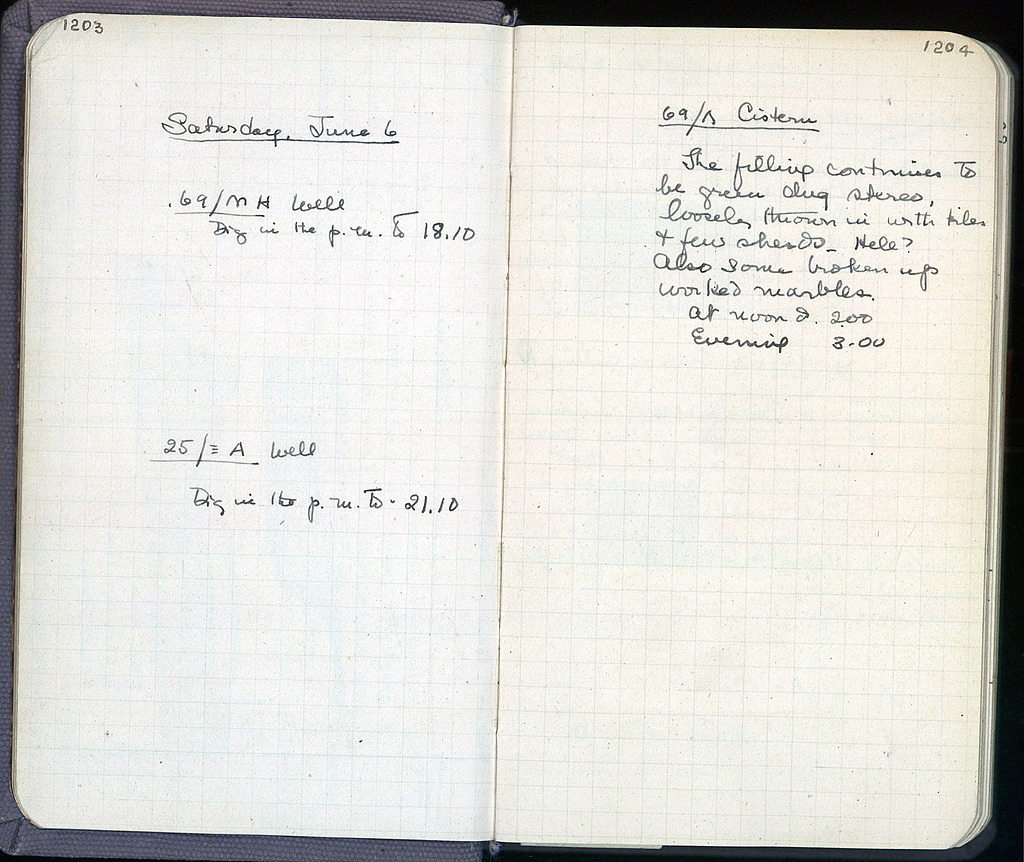 1203
Saturday, June 6
69/ΜΗ Well
Dig in the p.m. To 18.10
25/Ξ Α Well
Dig in the p.m. To - 21.10
1204
69/Λ Cistern
The filling continues to
be green dug stereo,
loosely thrown in with tiles
+ few sherds_ Hele?
Also some broken up
worked marbles.
At noon d. 2.00
Evening 3.00